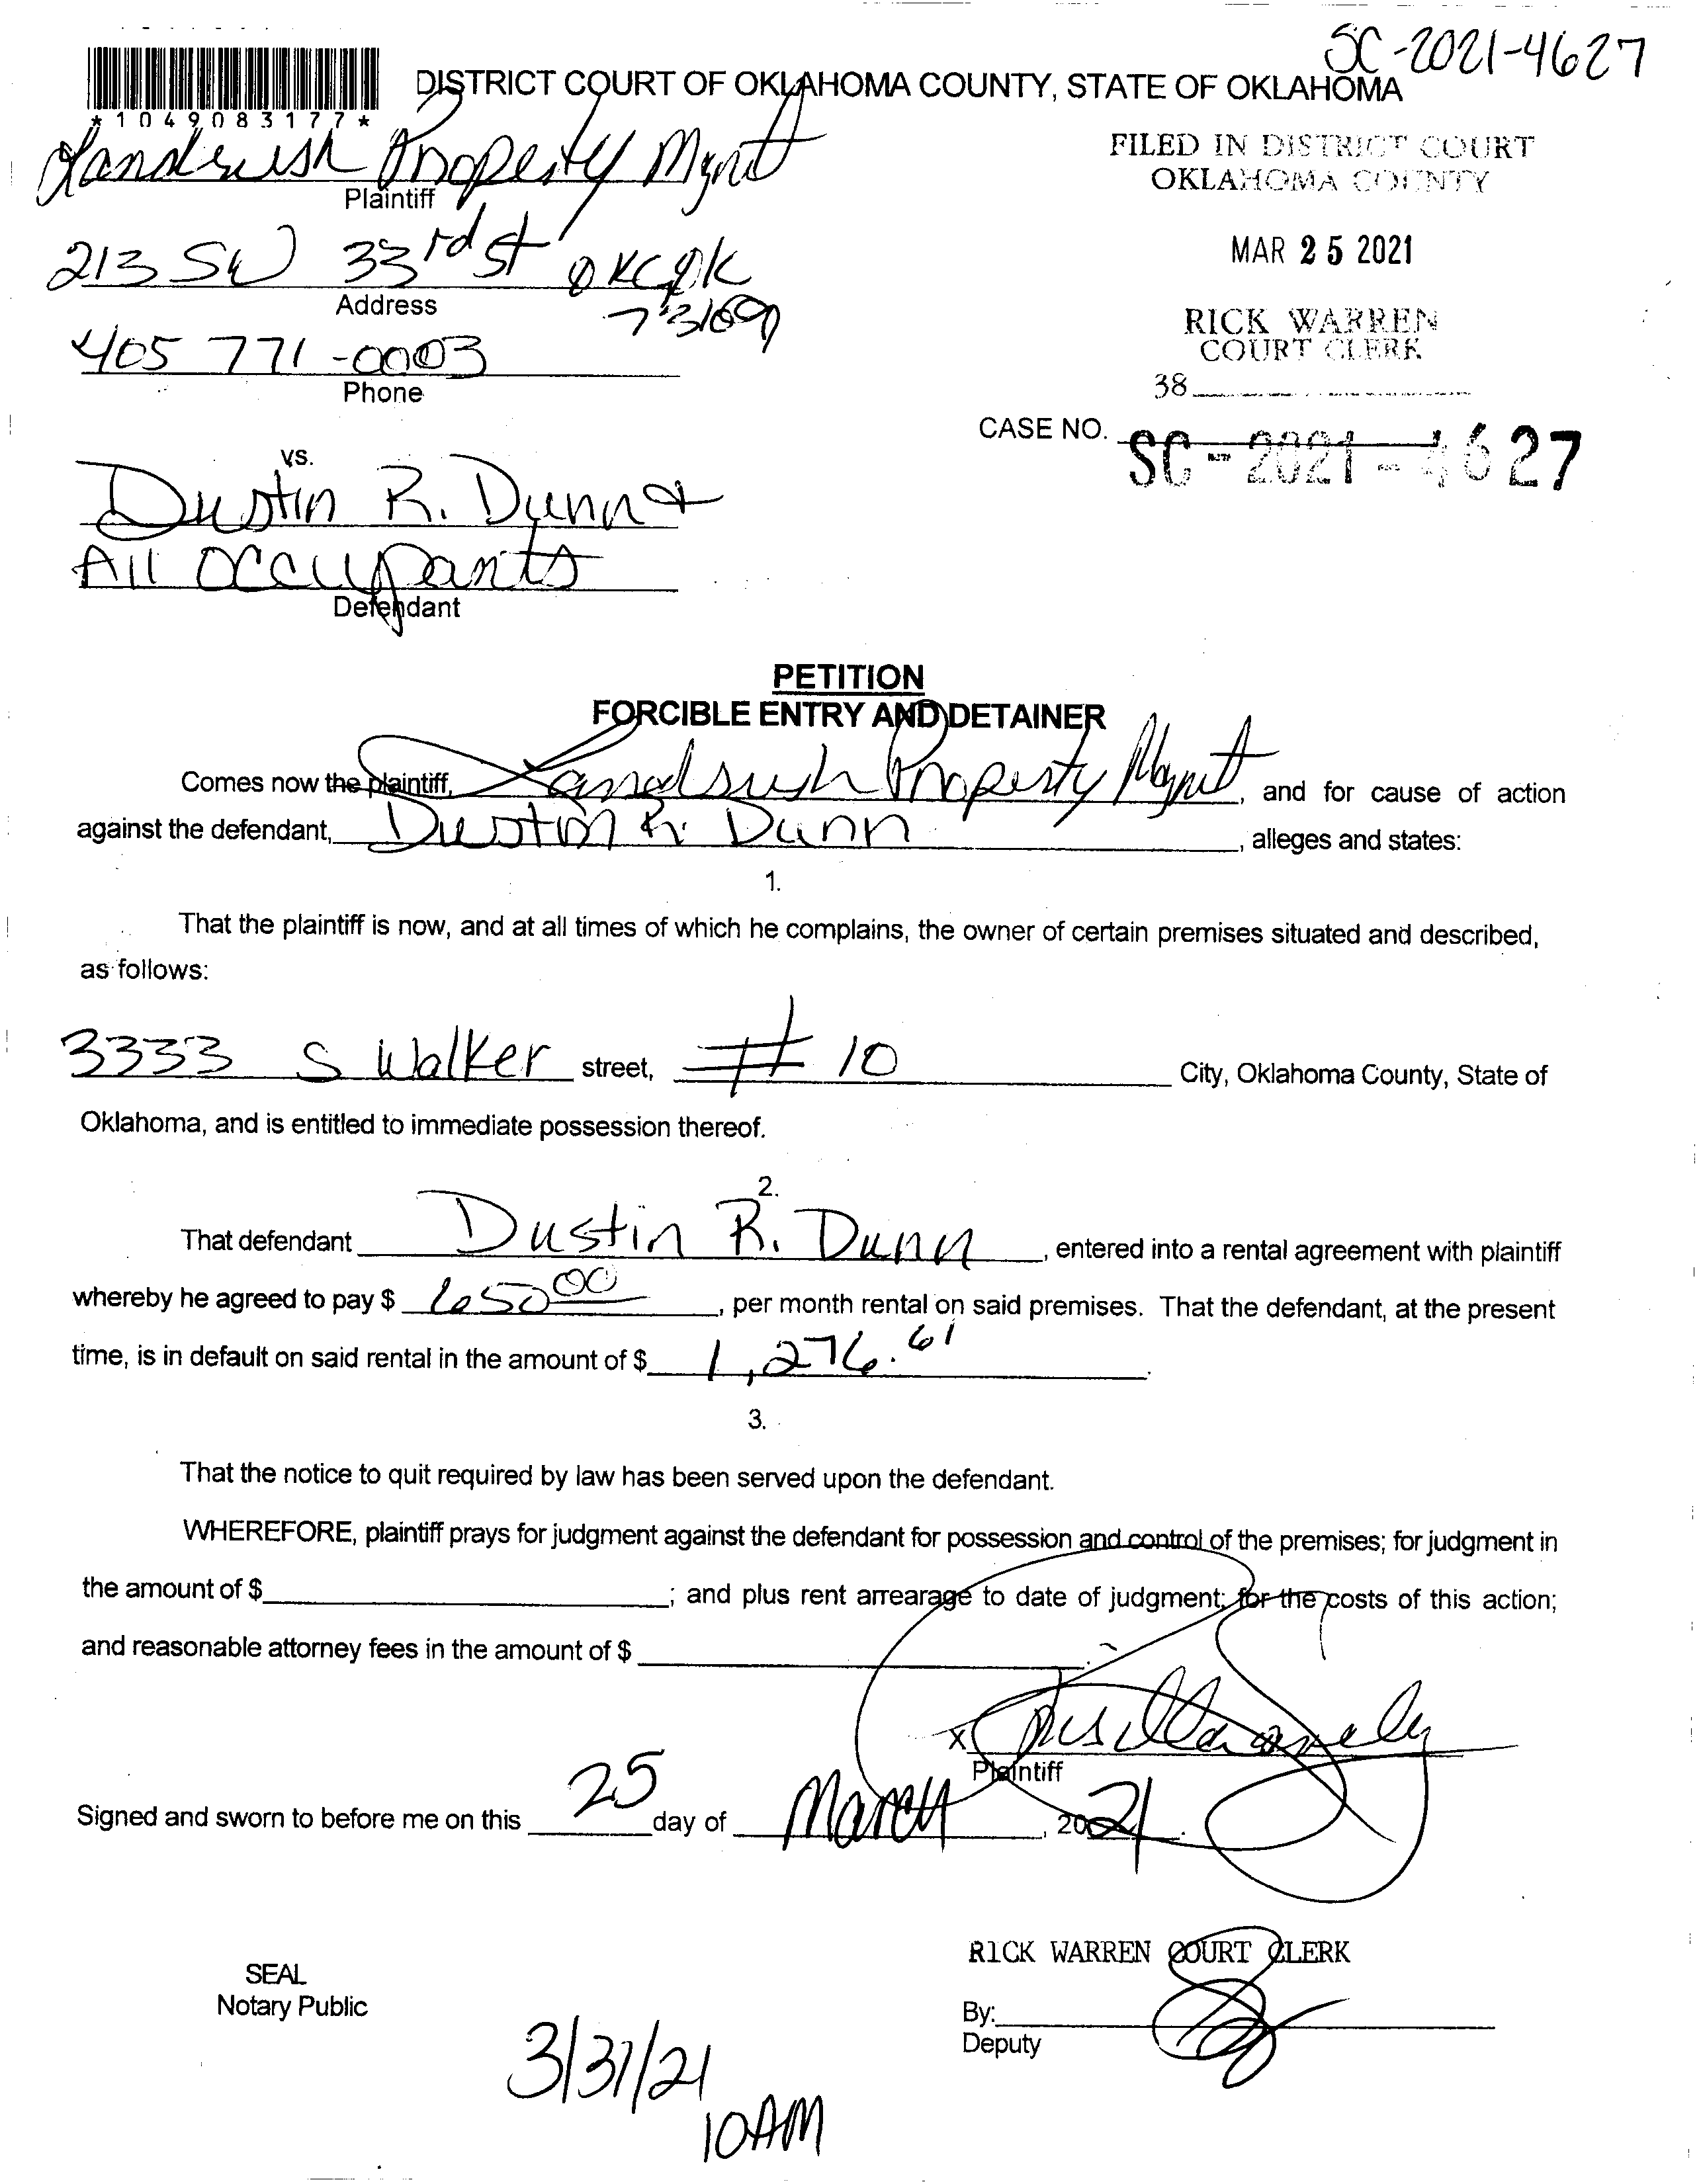 SC-2021-4627
DISTRICT COURT OF OKLAHOMA COUNTY, STATE OF OKLAHOMA
*1049083177*
Landrush Property Mgmt
Plaintiff
FILED IN DISTRICT COURT
OKLAHOMA COUNTY
213 SW 33rd St OKC OK
Address
73109
MAR 25 2021
405 771-0003
Phone
RICK WARREN
COURT CLERK
38
CASE NO. SC-2021-4627
vs.
Dustin R. Dunn &
All Occupants
Defendant
PETITION
FORCIBLE ENTRY AND DETAINER
Comes now the plaintiff, Landrush Property Mgmt, and for cause of action
against the defendant, Dustin R. Dunn, alleges and states:
1.
That the plaintiff is now, and at all times of which he complains, the owner of certain premises situated and described,
as follows:
3333 S Walker street, # 10 City, Oklahoma County, State of
Oklahoma, and is entitled to immediate possession thereof.
2.
That defendant Dustin R. Dunn, entered into a rental agreement with plaintiff
whereby he agreed to pay $ 650 00, per month rental on said premises. That the defendant, at the present
time, is in default on said rental in the amount of $ 1,276.61.
3.
That the notice to quit required by law has been served upon the defendant.
WHEREFORE, plaintiff prays for judgment against the defendant for possession and control of the premises; for judgment in
the amount of $; and plus rent arrearage to date of judgment; for the costs of this action;
and reasonable attorney fees in the amount of $.
X Priscilla
Plaintiff
Signed and sworn to before me on this 25 day of March, 2021.
RICK WARREN COURT CLERK
SEAL
Notary Public
By:
Deputy
3/31/21
10AM